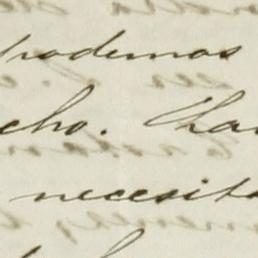 podemos
cho. Cha
necesita